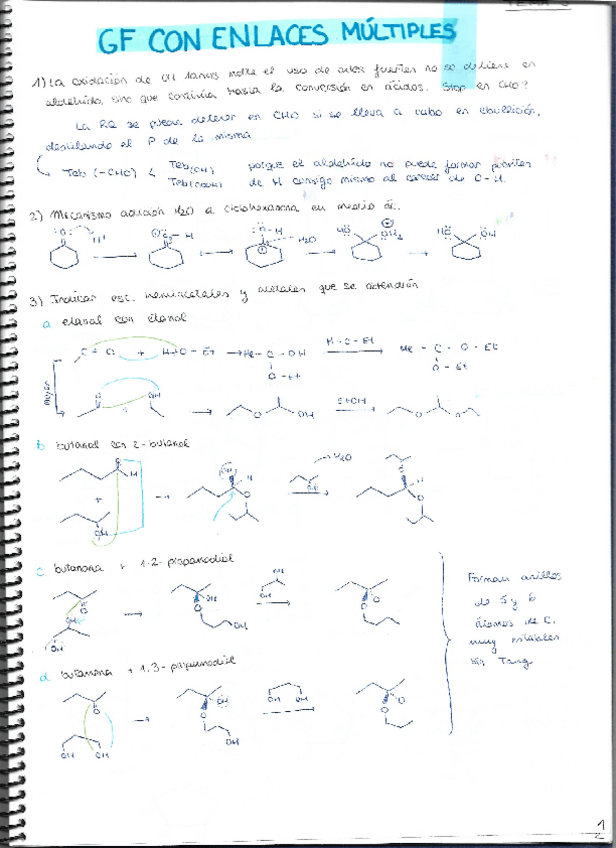 GF CON ENLACES MÚLTIPLES
1) La oxidación de OH 1arios el uso de fuertes no se detiene en
aldehído, sino que continúa hasta la conversión en ácidos. Stop en CHO?
La RQ se puede detener en CHO si se lleva a cabo en ebullición,
destilando el P de la misma
Teb (-CHO) < Teb(OH) porque el aldehído no puede formar puentes
Teb(COOH) de H consigo mismo al carecer de O-H.
2) Mecanismo adición H2O a ciclohexanona en medio ác.
O H+ O-H O-H H2O HO OH2 HO OH
3) Indicar est. hemiacetales y acetales que se obtendrán
a etanal con etanol
C=O + H-O-Et Me-C-OH H-O-Et Me-C-O-Et
O-Et O-Et
Mejor
O OH + O OH EtOH O O
b butanal con 2-butanol
O H OH H H2O
+ OH O O H
OH O
c butanona + 1,2-propanodiol
O OH OH O
OH O OH OH O
d butanona + 1,3-propanodiol
O OH OH OH O
OH OH O OH O
Forman anillos
de 5 y 6
átomos de C.
muy estables
sin Tang
1